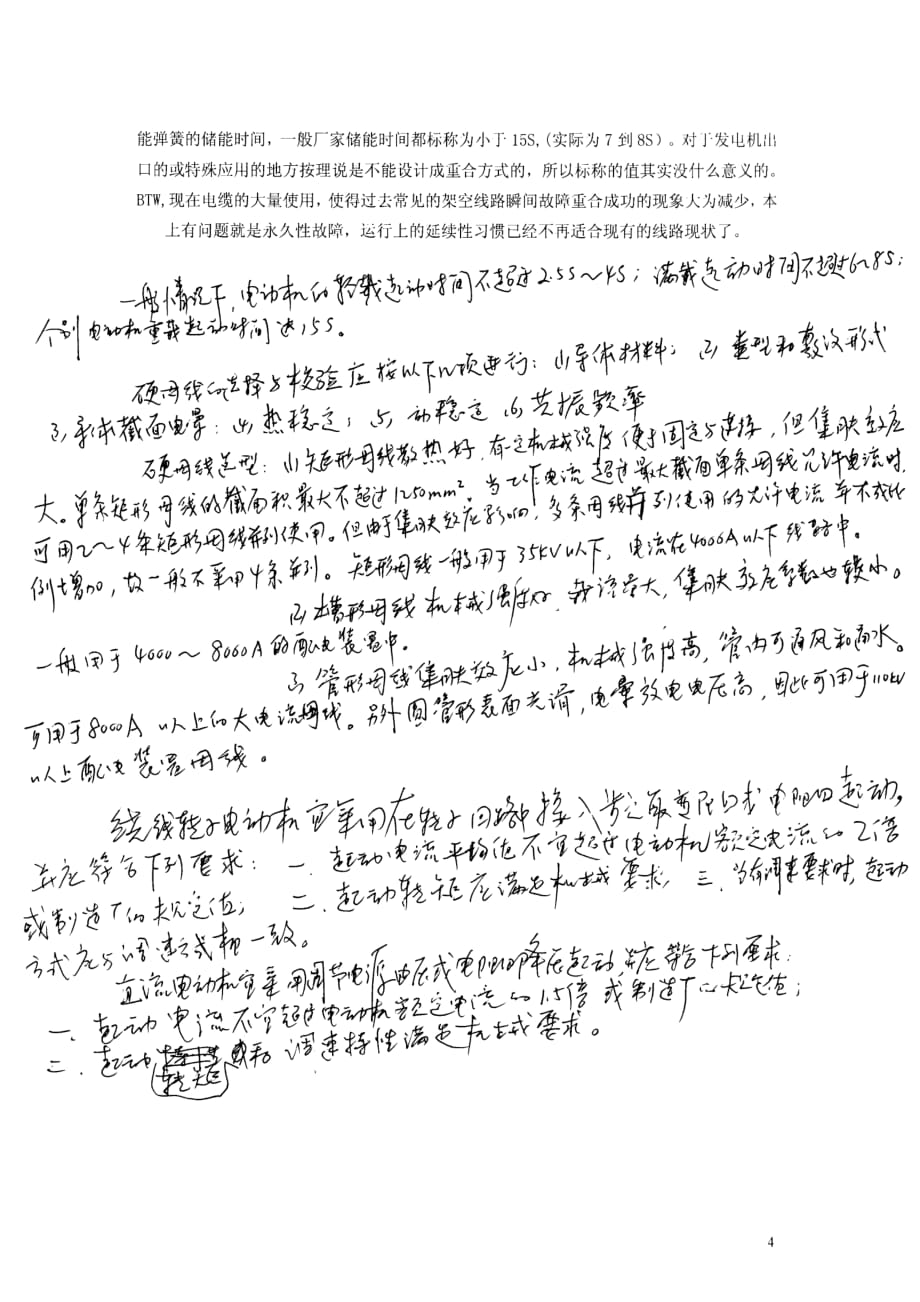 能弹簧的储能时间，一般厂家储能时间都标称为小于 15S,(实际为 7 到 8S）。对于发电机出
口的或特殊应用的地方按理说是不能设计成重合方式的，所以标称的值其实没什么意义的。
BTW,现在电缆的大量使用，使得过去常见的架空线路瞬间故障重合成功的现象大为减少，本
上有问题就是永久性故障，运行上的延续性习惯已经不再适合现有的线路现状了。
一般情况下，电动机的轻载起动时间不超过2.5S～4S；满载起动时间不超过6～8S；
个别电动机重载起动时间达15S。
硬母线的选择与校验应按以下几项进行：(1)导体材料；(2)类型和敷设形式
(3)导体截面电晕；(4)热稳定；(5)动稳定(6)共振频率
硬母线选型：(1)矩形母线散热好，有一定机械强度便于固定与连接，但集肤效应
大。单条矩形母线的截面积最大不超过1250mm²。当工作电流超过最大截面单条母线允许电流时，
可用2～4条矩形母线并列使用。但由于集肤效应影响，多条母线并列使用的允许电流并不成比
例增加，故一般不采用4条并列。矩形母线一般用于35kV以下，电流在4000A以下线路中。
(2)槽形母线机械强度好，载流量大，集肤效应系数也较小。
一般用于4000～8000A的配电装置中。
(3)管形母线集肤效应小，机械强度高，管内可通风和雨水。
可用于8000A以上的大电流母线。另外圆管形表面光滑，电晕放电电压高，因此可用于110kV
以上配电装置母线。
绕线转子电动机宜采用在转子回路中接入频敏变阻器或电阻器起动，
并应符合下列要求：一．起动电流平均值不宜超过电动机额定电流的2倍
或制造厂的规定值；二．起动转矩应满足机械要求，三．当有调速要求时，起动
方式应与调速方式相一致。
直流电动机宜采用调节电源电压或电阻器降压起动并应符合下列要求：
一．起动电流不宜超过电动机额定电流的1.5倍或制造厂的规定值；
二．起动 和调速特性满足机械要求。
转矩
4